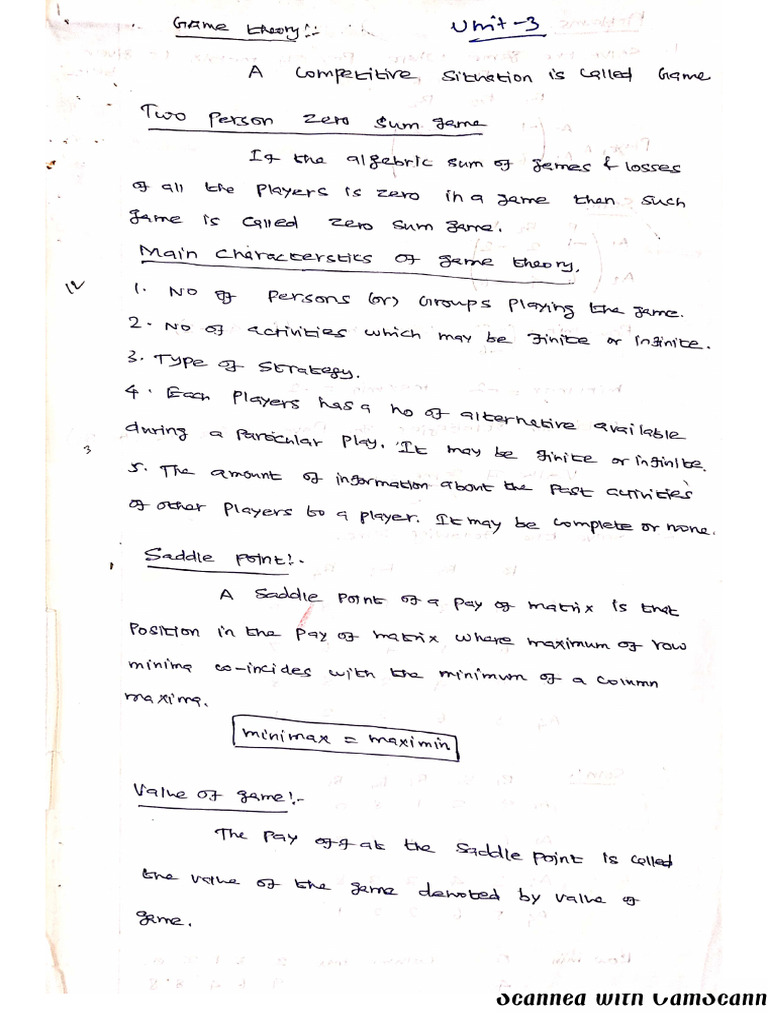 Game theory:-
Unit-3
A Competitive Situation is called Game
Two Person Zero Sum game
If the algebric sum of gemes & losses
of all the players is zero in a game then such
game is called zero sum game.
Main characterstics of game theory.
1. No of Persons (or) Groups playing the game.
2. No of activities which may be finite or infinite.
3. Type of strategy.
4. Each players has a no of alternative available
during a particular play. It may be finite or infinite.
3
5. The amount of information about the past activities
of other players to a player. It may be complete or none.
Saddle point:-
A Saddle point of a pay of matrix is that
Position in the pay of matrix where maximum of row
minima co-incides with the minimum of a column
maxima.
minimax = maximin
Value of game:-
The pay off at the saddle point is called
the value of the game denoted by value of
game.
Scanned with CamScann